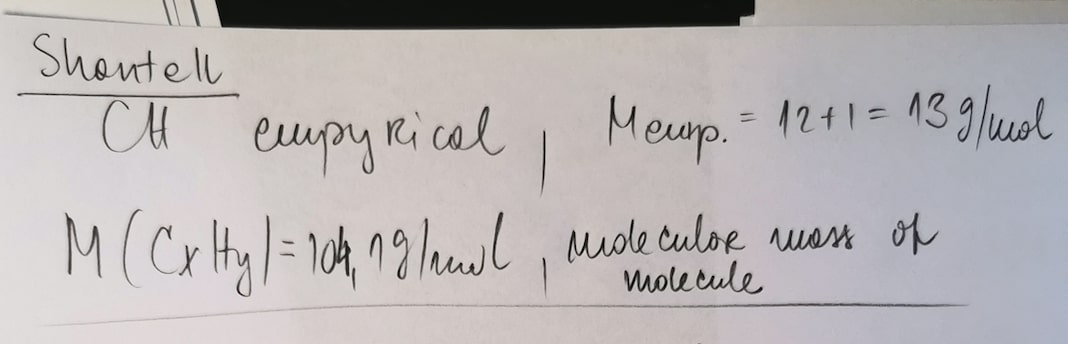 Shantell
CH empyrical, Memp. = 12+1 = 13 g/mol
M(CxHy) = 104,1g/mol, molecular mass of
molecule